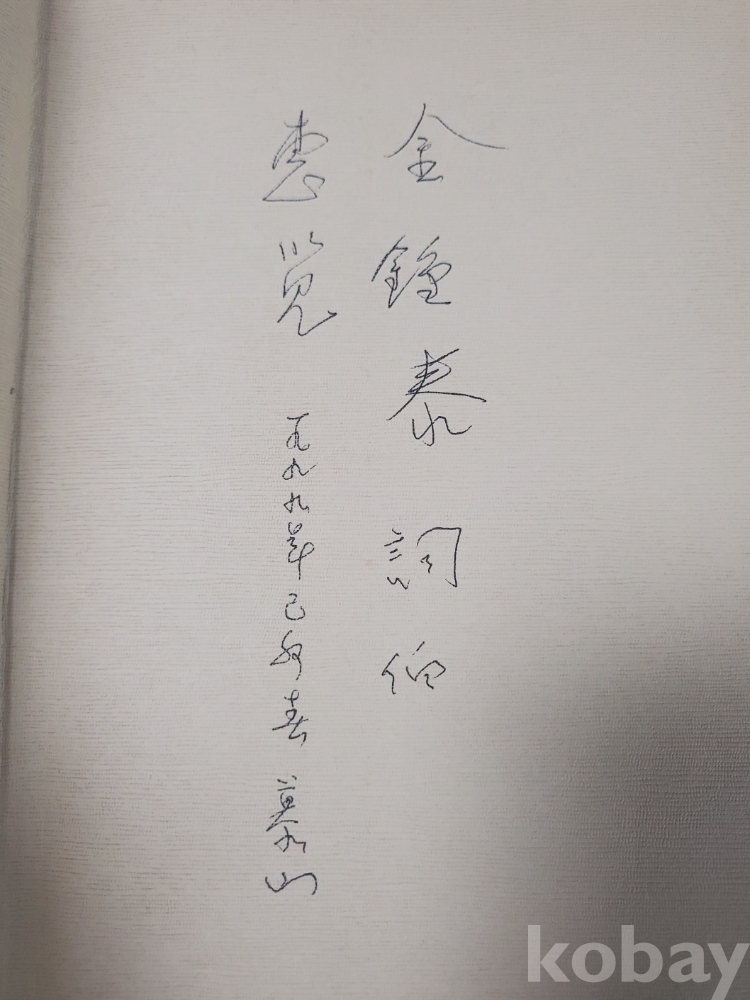 金鍾泰 詞伯
惠覽 一九九九年己卯春 慕山
kobay